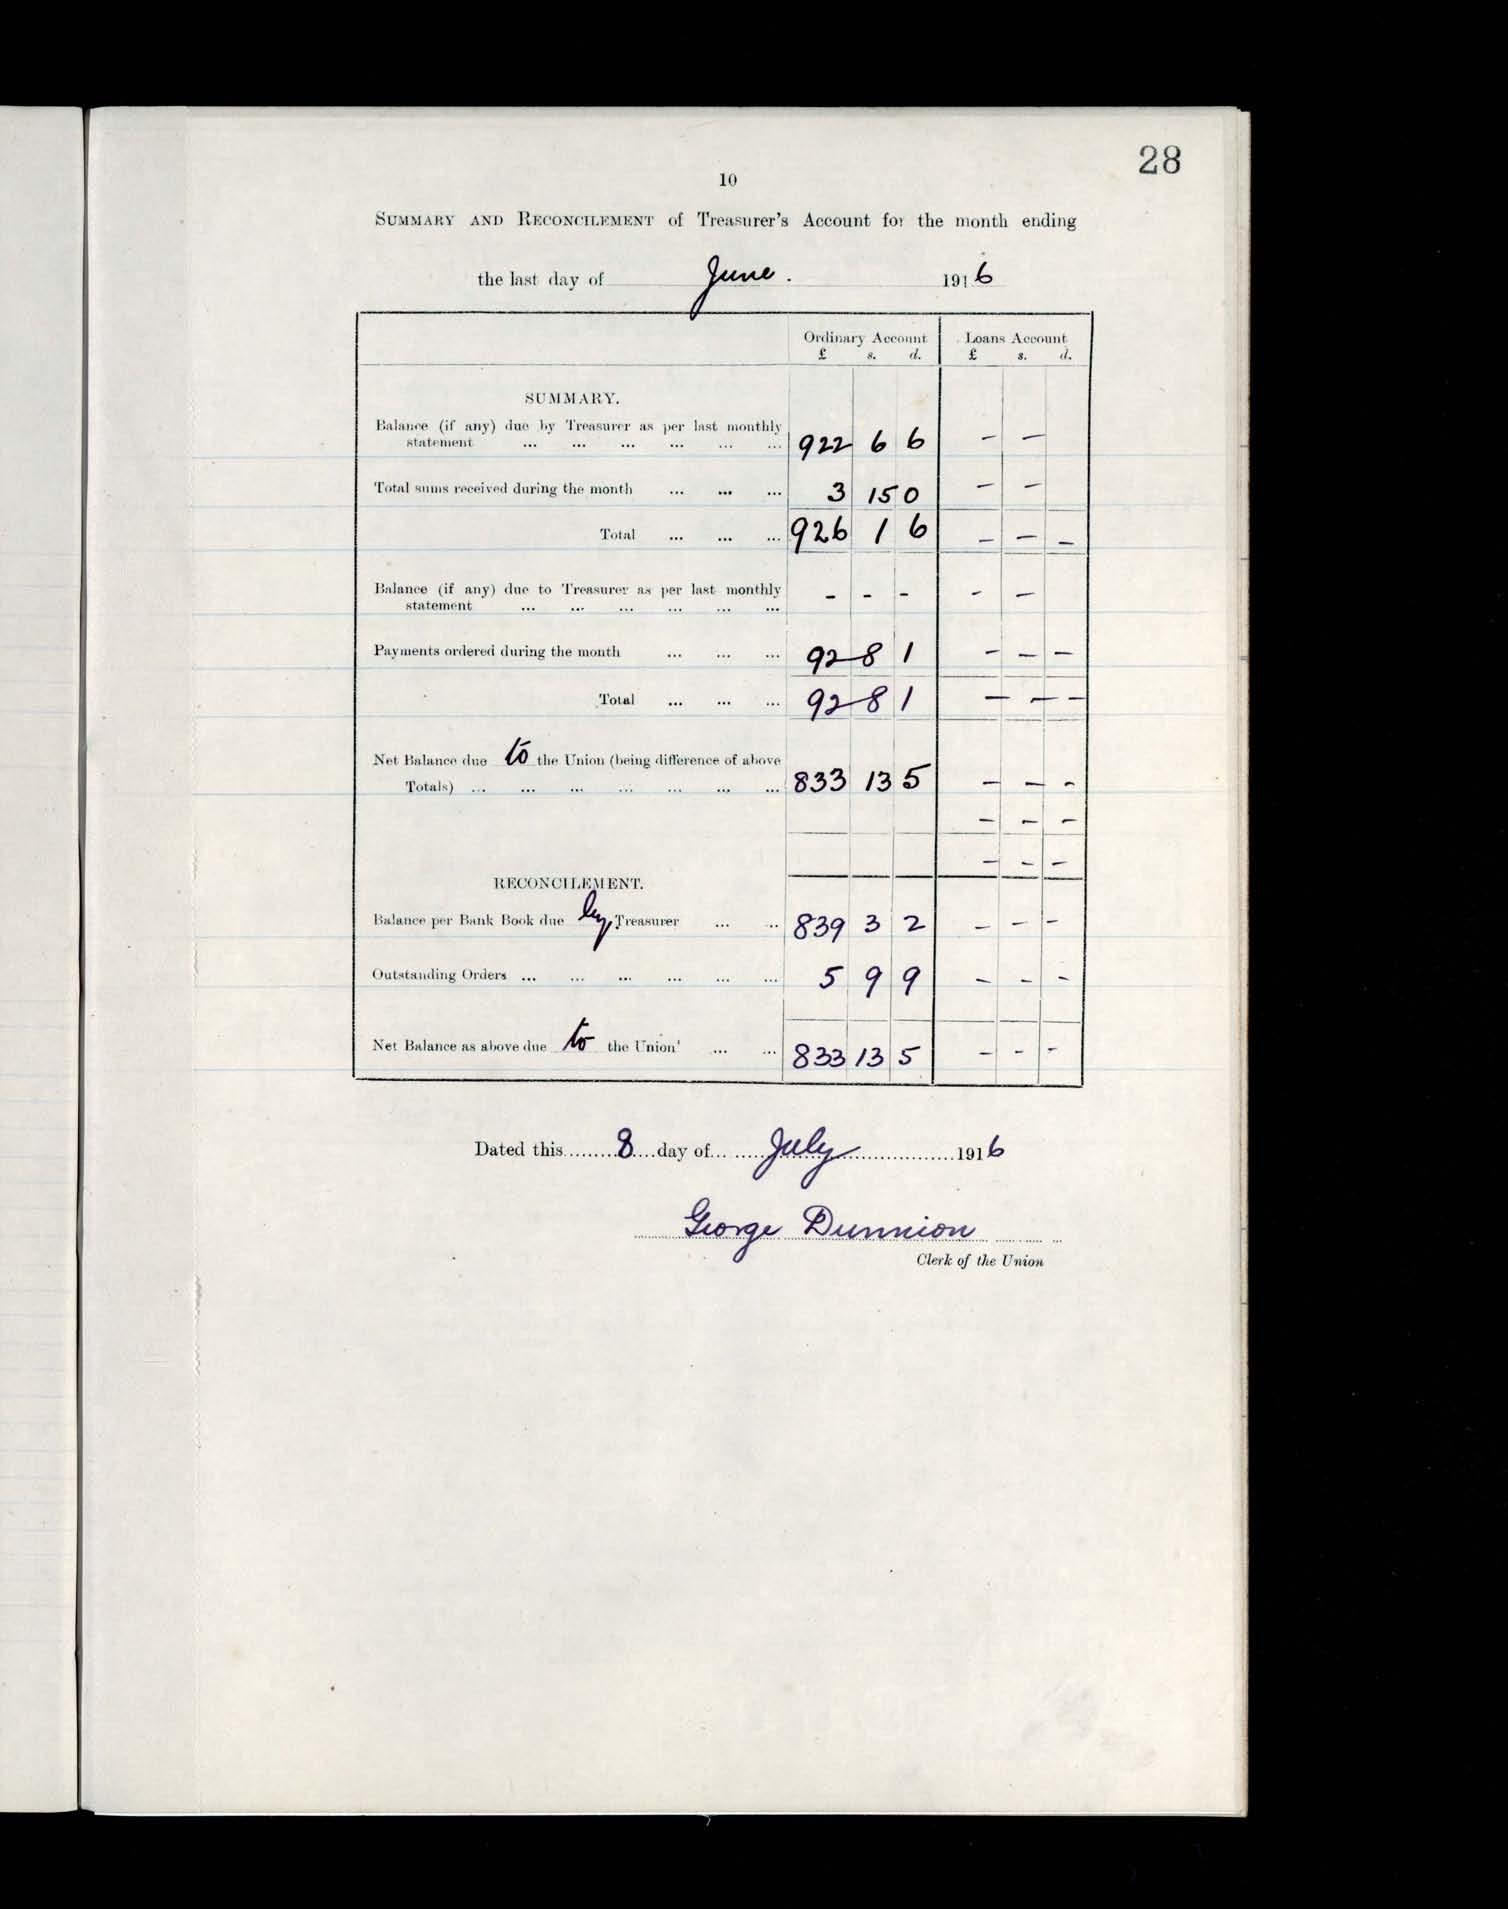 28
10
SUMMARY AND RECONCILEMENT of Treasurer's Account for the month ending
the last day of June. 1916
Ordinary Account Loans Account
£ s. d. £ s. d.
SUMMARY.
Balance (if any) due by Treasurer as per last monthly
statement ... ... ... ... ... ... 922 6 6 – –
Total sums received during the month ... ... ... 3 15 0 – –
Total ... ... ... 926 1 6 – – –
Balance (if any) due to Treasurer as per last monthly
statement ... ... ... ... ... ... - - - - –
Payments ordered during the month ... ... ... 92 8 1 – – –
Total ... ... ... 92 8 1 – – –
Net Balance due to the Union (being difference of above
Totals) ... ... ... ... ... ... ... 833 13 5 – – -
– – –
– – –
RECONCILEMENT.
Balance per Bank Book due by Treasurer ... ... 839 3 2 – – –
Outstanding Orders ... ... ... ... ... ... 5 9 9 – - -
Net Balance as above due to the Union' ... ... 833 13 5 – - -
Dated this.........8....day of.........July...................1916
George Dunnion
Clerk of the Union